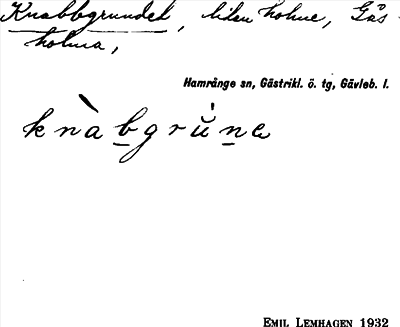 Knabbgrundet, liten holme, Gås-
holma,
Hamrånge sn, Gästrikl. ö. tg, Gävleb. l.
knàb̲grŭ̍n̲e
EMIL LEMHAGEN 1932